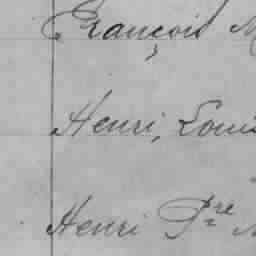 François
Henri, Louis
Henri Pre